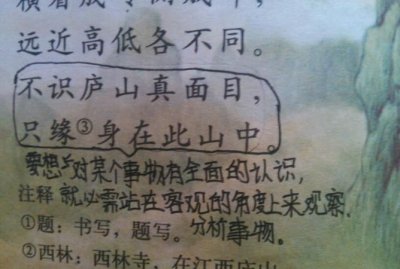 远近高低各不同。
不识庐山真面目，
只缘③身在此山中。
要想对某个事物有全面的认识，
注释 就必需站在客观的角度上来观察.
①题：书写，题写。分析事物。
②西林：西林寺，在江西庐山